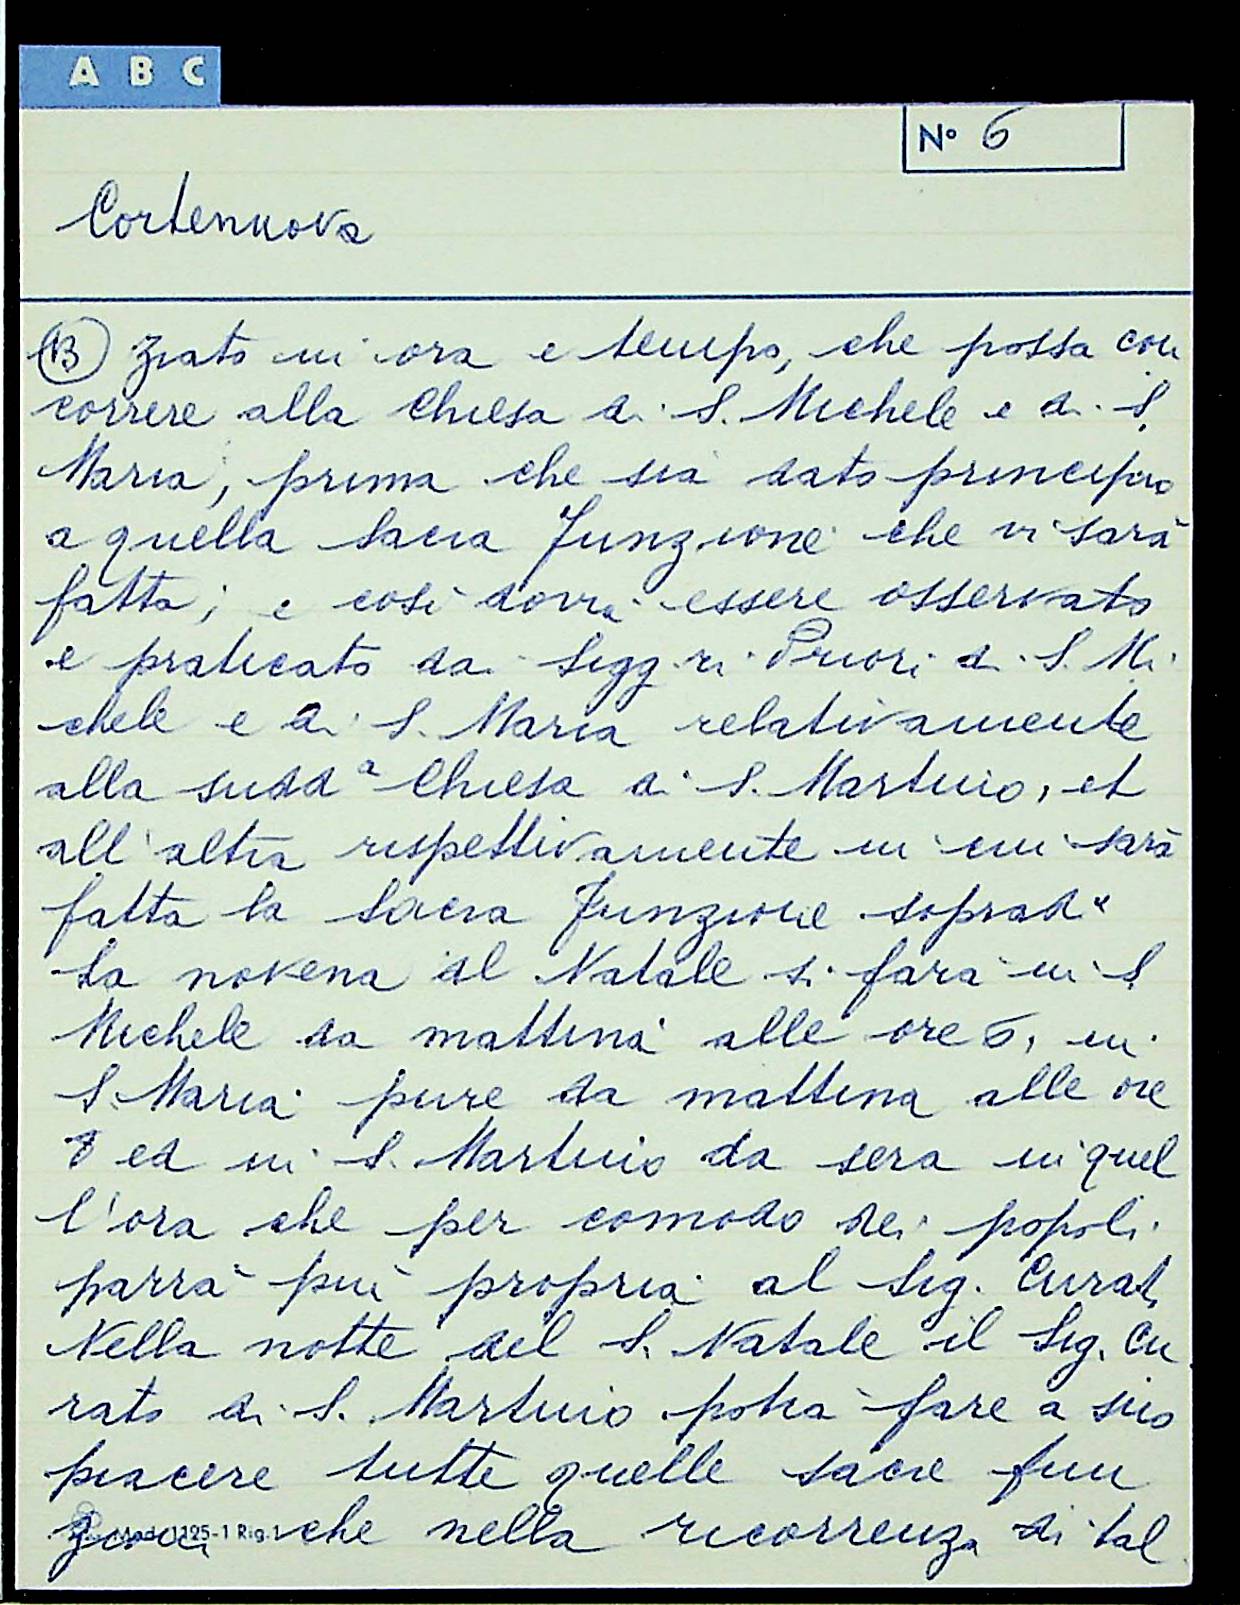 A B C
N° 6
Cortenuova
(13) ziato in ora e tempo, che possa con
correre alla Chiesa di S. Michele e di S.
Maria, prima che sia dato principio
a quella sacra Funzione che vi sarà
fatta; e così dovrà essere osservato
e praticato dai Sigg.ri Priori di S. Mi
chele e di S. Maria relativamente
alla sudd.a Chiesa di S. Martino, et
all'altra rispettivamente in cui sarà
fatta la sacra Funzione soprad.a
La novena al Natale si farà in S.
Michele da mattina alle ore 6, in
S. Maria pure da mattina alle ore
8 ed in S. Martino da sera in quel
l'ora che per comodo dei popoli
parrà più propria al Sig. Curat.
Nella notte del S. Natale il Sig. Cu
rato di S. Martino potrà fare a suo
piacere tutte quelle sacre fun
zioni che nella ricorrenza di tal
Mod. 1125-1 Rig. 1